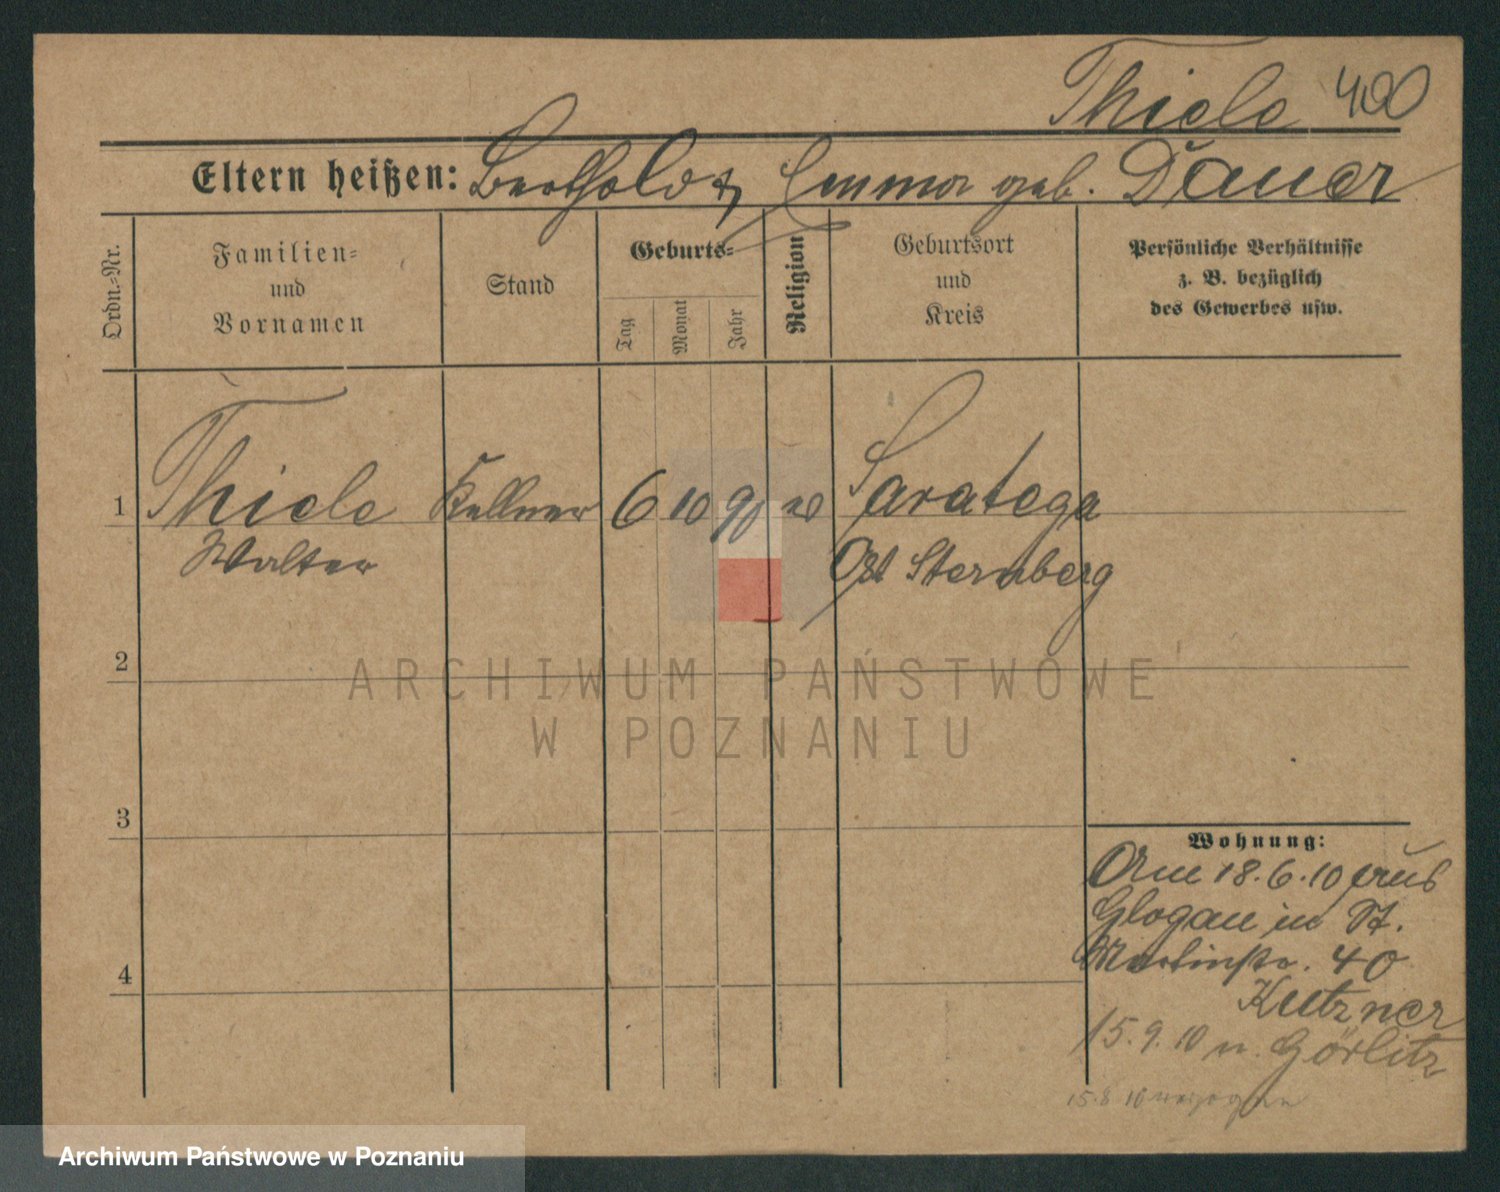 Thiele 400
Eltern heißen: Berthold & Emma geb. Dauer
Ordn.-Nr.
Familien-
und
Vornamen
Stand
Geburts-
Tag
Monat
Jahr
Religion
Geburtsort
und
Kreis
Persönliche Verhältnisse
z. B. bezüglich
des Gewerbes usw.
1 Thiele Kellner 6 10 90 Saratoga
Walter Ost Sternberg
2
ARCHIWUM PAŃSTWOWE
W POZNANIU
3
Wohnung:
18.6.10 aus
Glogau in St.
Martinstr. 40
4
Kutzner
15.9.10 n. Görlitz
15.8 10 verzogen
Archiwum Państwowe w Poznaniu